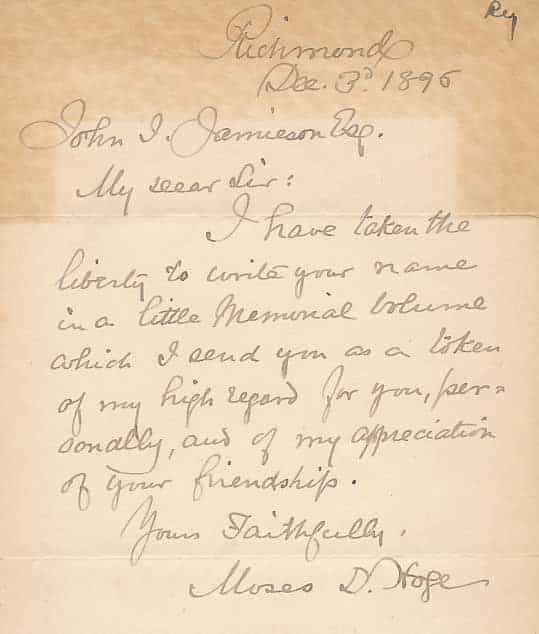 Ry
Richmond
Dec. 3d. 1896
John I. Jamieson Esq.
My dear Sir:
I have taken the
liberty to write your name
in a little Memorial Volume
which I send you as a token
of my high regard for you, per=
sonally, and of my appreciation
of your friendship.
Yours Faithfully,
Moses D. Hoge